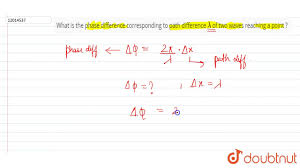 12014537
What is the phase difference corresponding to path difference λ of two waves reaching a point ?
phase diff ← Δϕ = 2π/λ · Δx
path diff
Δϕ = ? , Δx = λ
Δϕ = 2
doubtnut